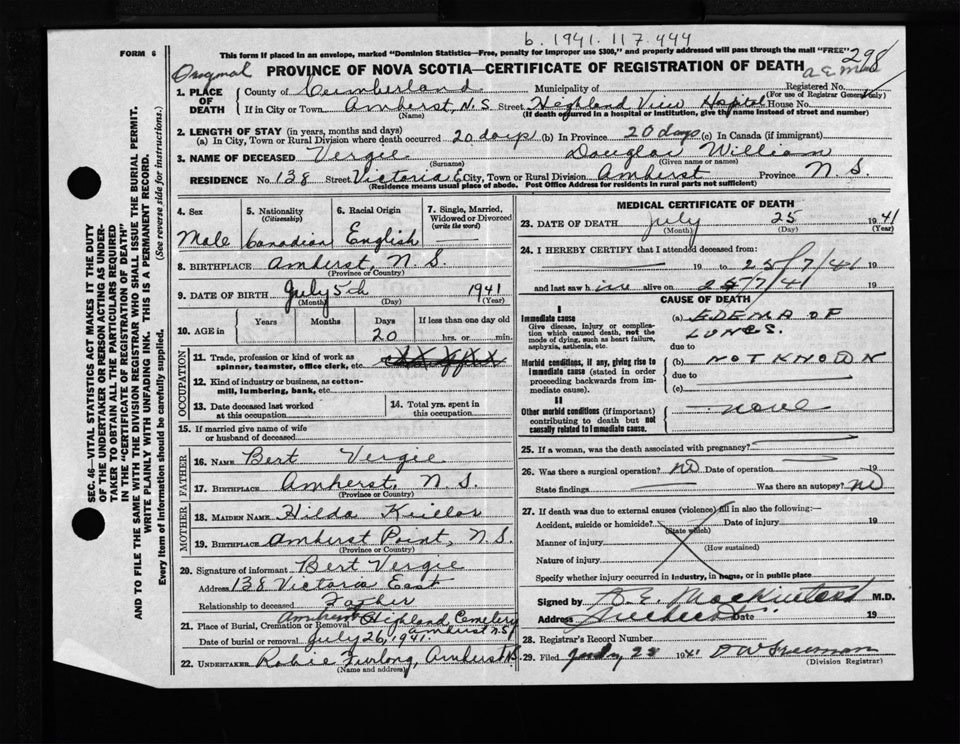 b. 1941. 117. 444
298
FORM 6
This form if placed in an envelope, marked "Dominion Statistics—Free, penalty for improper use $300," and properly addressed will pass through the mail "FREE"
Original
PROVINCE OF NOVA SCOTIA—CERTIFICATE OF REGISTRATION OF DEATH
1. PLACE OF DEATH
County of Cumberland Municipality of Registered No.
(For use of Registrar General only)
If in City or Town Amherst, N.S. Street Highland View Hospital House No.
(Name) (If death occurred in a hospital or institution, give the name instead of street and number)
2. LENGTH OF STAY (in years, months and days)
(a) In City, Town or Rural Division where death occurred 20 days (b) In Province 20 days (c) In Canada (if immigrant)
3. NAME OF DECEASED Vergie Douglas William
(Surname) (Given name or names)
RESIDENCE No. 138 Street Victoria E City, Town or Rural Division Amherst Province N. S.
(Residence means usual place of abode. Post Office Address for residents in rural parts not sufficient)
4. Sex 5. Nationality (Citizenship) 6. Racial Origin 7. Single, Married, Widowed or Divorced (write the word)
Male Canadian English —
8. BIRTHPLACE Amherst, N. S.
(Province or Country)
9. DATE OF BIRTH July 5th 1941
(Month) (Day) (Year)
10. AGE in Years Months Days If less than one day old
20 hrs. or min.
OCCUPATION
11. Trade, profession or kind of work as spinner, teamster, office clerk, etc.
12. Kind of industry or business, as cotton-mill, lumbering, bank, etc.
13. Date deceased last worked at this occupation
14. Total yrs. spent in this occupation
15. If married give name of wife or husband of deceased
FATHER
16. NAME Bert Vergie
17. BIRTHPLACE Amherst, N. S.
(Province or Country)
MOTHER
18. MAIDEN NAME Hilda
19. BIRTHPLACE Amherst Point, N. S.
(Province or Country)
20. Signature of informant Bert Vergie
Address 138 Victoria East
Relationship to deceased Father
21. Place of Burial, Cremation or Removal Amherst Highland Cemetery
Amherst N.S.
Date of burial or removal July 26, 1941.
22. UNDERTAKER Robie Furlong, Amherst N.S.
(Name and address)
MEDICAL CERTIFICATE OF DEATH
23. DATE OF DEATH July 25 1941
(Month) (Day) (Year)
24. I HEREBY CERTIFY that I attended deceased from:
19 to 25/7/41 19
and last saw h alive on 25/7/41 19
CAUSE OF DEATH
I
Immediate cause
Give disease, injury or complication which caused death, not the mode of dying, such as heart failure, asphyxia, asthenia, etc.
(a) EDEMA OF
LUNGS.
due to
Morbid conditions, if any, giving rise to immediate cause (stated in order proceeding backwards from immediate cause).
(b) NOT KNOWN
due to
(c)
II
Other morbid conditions (if important) contributing to death but not causally related to immediate cause.
none
25. If a woman, was the death associated with pregnancy?
26. Was there a surgical operation? no Date of operation 19
State findings Was there an autopsy? no
27. If death was due to external causes (violence) fill in also the following:—
Accident, suicide or homicide? Date of injury 19
(State which)
Manner of injury
(How sustained)
Nature of injury
Specify whether injury occurred in industry, in home, or in public place
Signed by M.D.
Address Date 19
28. Registrar's Record Number
29. Filed July 28 1941 D W Freeman
(Division Registrar)
SEC. 46—VITAL STATISTICS ACT MAKES IT THE DUTY
OF THE UNDERTAKER OR PERSON ACTING AS UNDER-
TAKER TO OBTAIN ALL THE PARTICULARS REQUIRED
IN THE "CERTIFICATE OF REGISTRATION OF DEATH"
AND TO FILE THE SAME WITH THE DIVISION REGISTRAR WHO SHALL ISSUE THE BURIAL PERMIT.
WRITE PLAINLY WITH UNFADING INK. THIS IS A PERMANENT RECORD.
Every item of information should be carefully supplied. (See reverse side for instructions.)